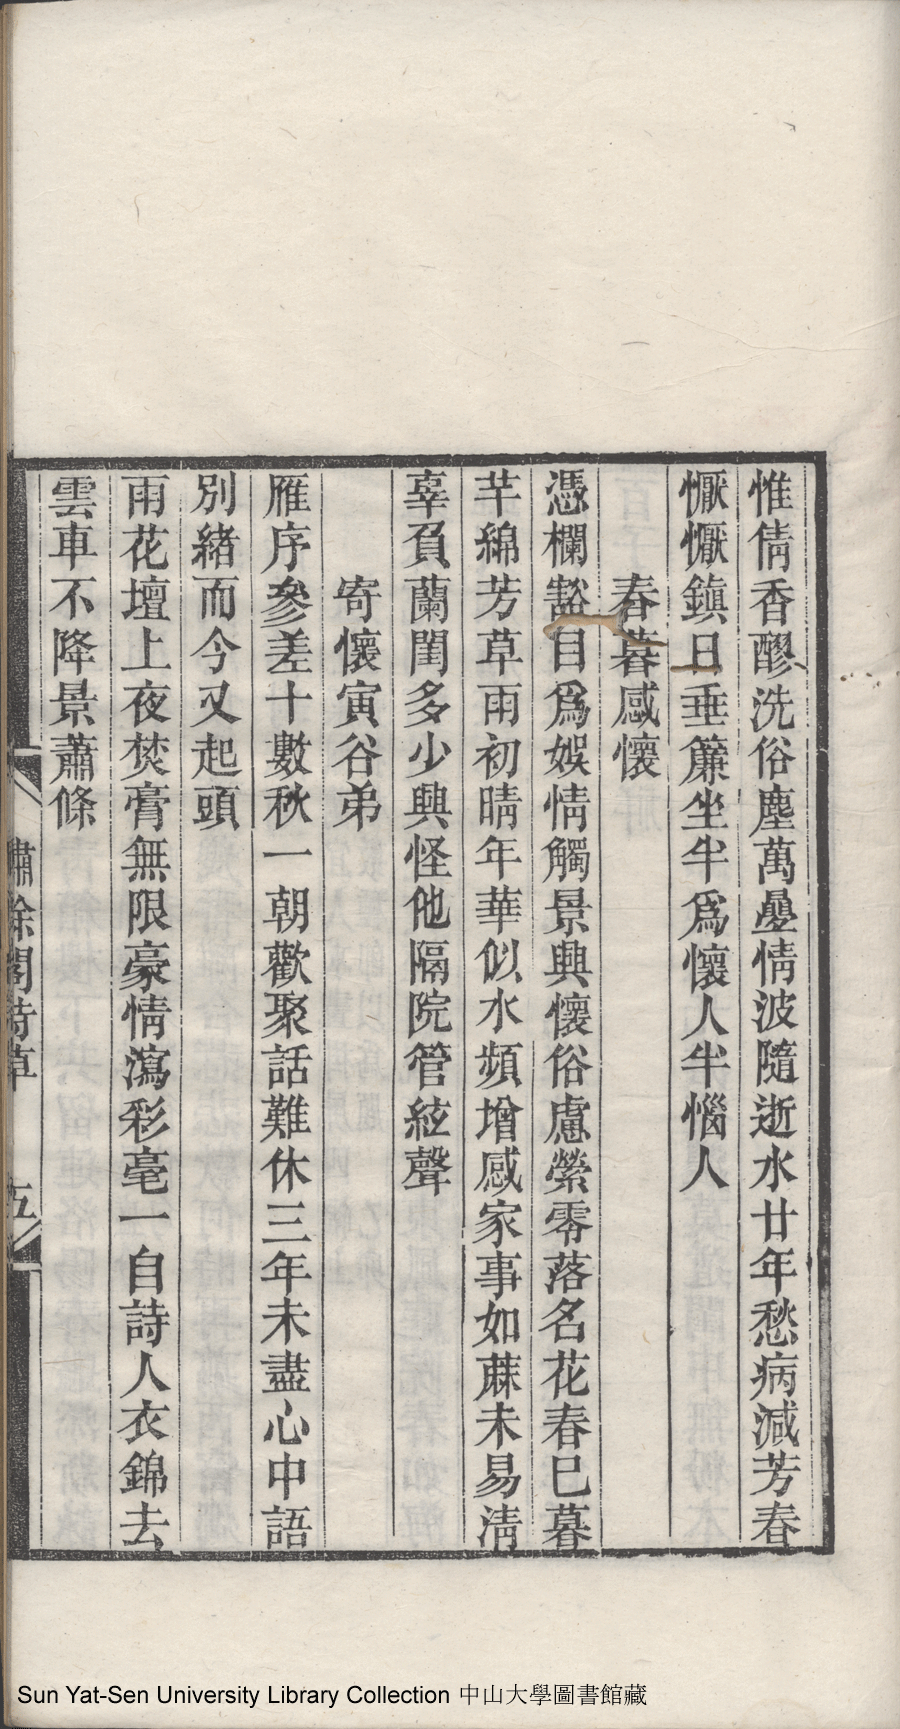 惟倩香醪洗俗塵萬疊情波隨逝水廿年愁病減芳春
懨懨鎮日垂簾坐半爲懷人半惱人
春暮感懷
憑欄豁目爲娛情觸景興懷俗慮縈零落名花春巳暮
芊綿芳草雨初晴年華似水頻增感家事如蔴未易淸
辜負蘭閨多少興怪他隔院管絃聲
寄懷寅谷弟
雁序參差十數秋一朝歡聚話難休三年未盡心中語
別緒而今又起頭
雨花壇上夜焚膏無限豪情瀉彩毫一自詩人衣錦去
雲車不降景蕭條
繡餘閣詩草
五
Sun Yat-Sen University Library Collection 中山大學圖書館藏